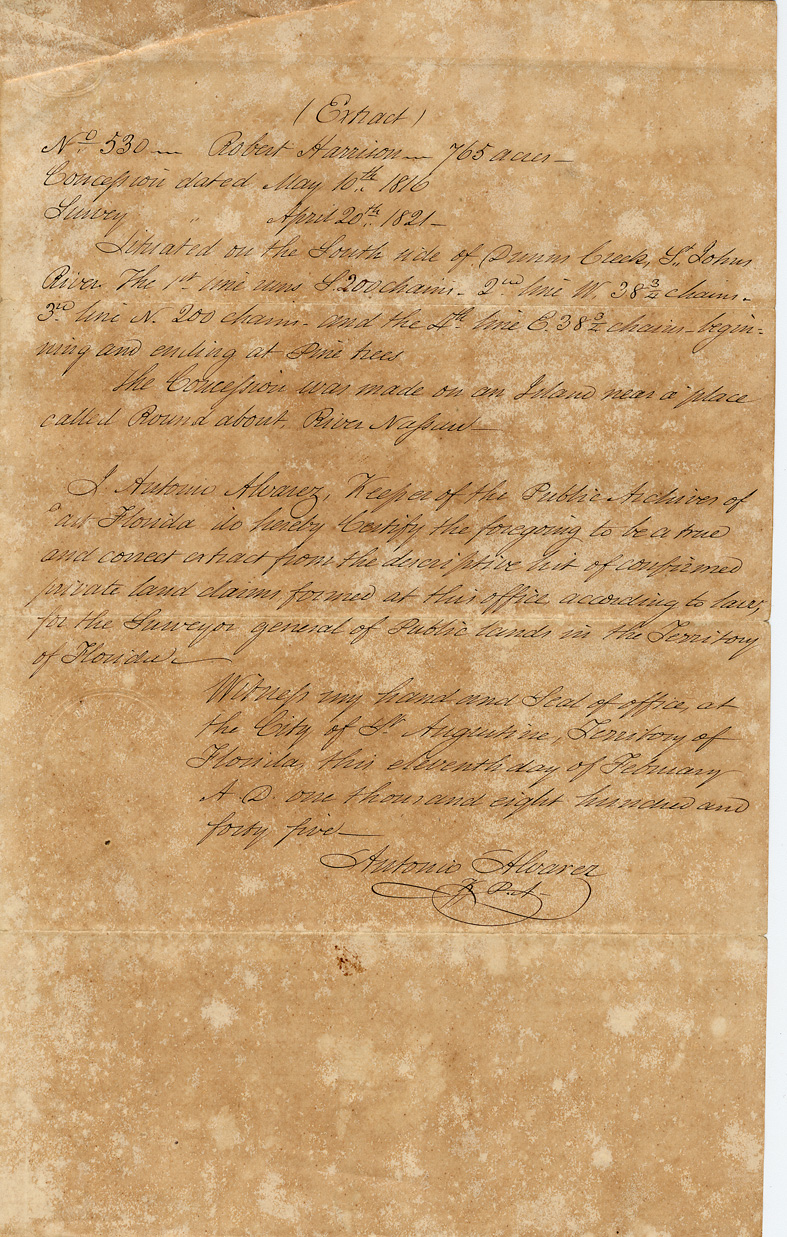 (Extract)
No. 530 — Robert Harrison — 765 acres —
Concession dated May 10th 1816
Survey " April 20th 1821 —
Situated on the South side of Dunns Creek, St. Johns
River. The 1st line runs S. 200 chains - 2nd line W. 38 3/4 chains -
3rd line N. 200 chains - and the 4th line E. 38 3/4 chains - begin=
ning and ending at Pine trees
The Concession was made on an Island near a place
called Round about, River Nassau —
I Antonio Alvarez, Keeper of the Public Archives of
East Florida do hereby Certify the foregoing to be a true
and correct extract from the descriptive list of confirmed
private land claims formed at this office according to law,
for the Surveyor general of Public lands in the Territory
of Florida —
Witness my hand and Seal of office, at
the City of St. Augustine, Territory of
Florida, this eleventh day of February
A. D. one thousand eight hundred and
forty five —
Antonio Alvarez
K. P. A.